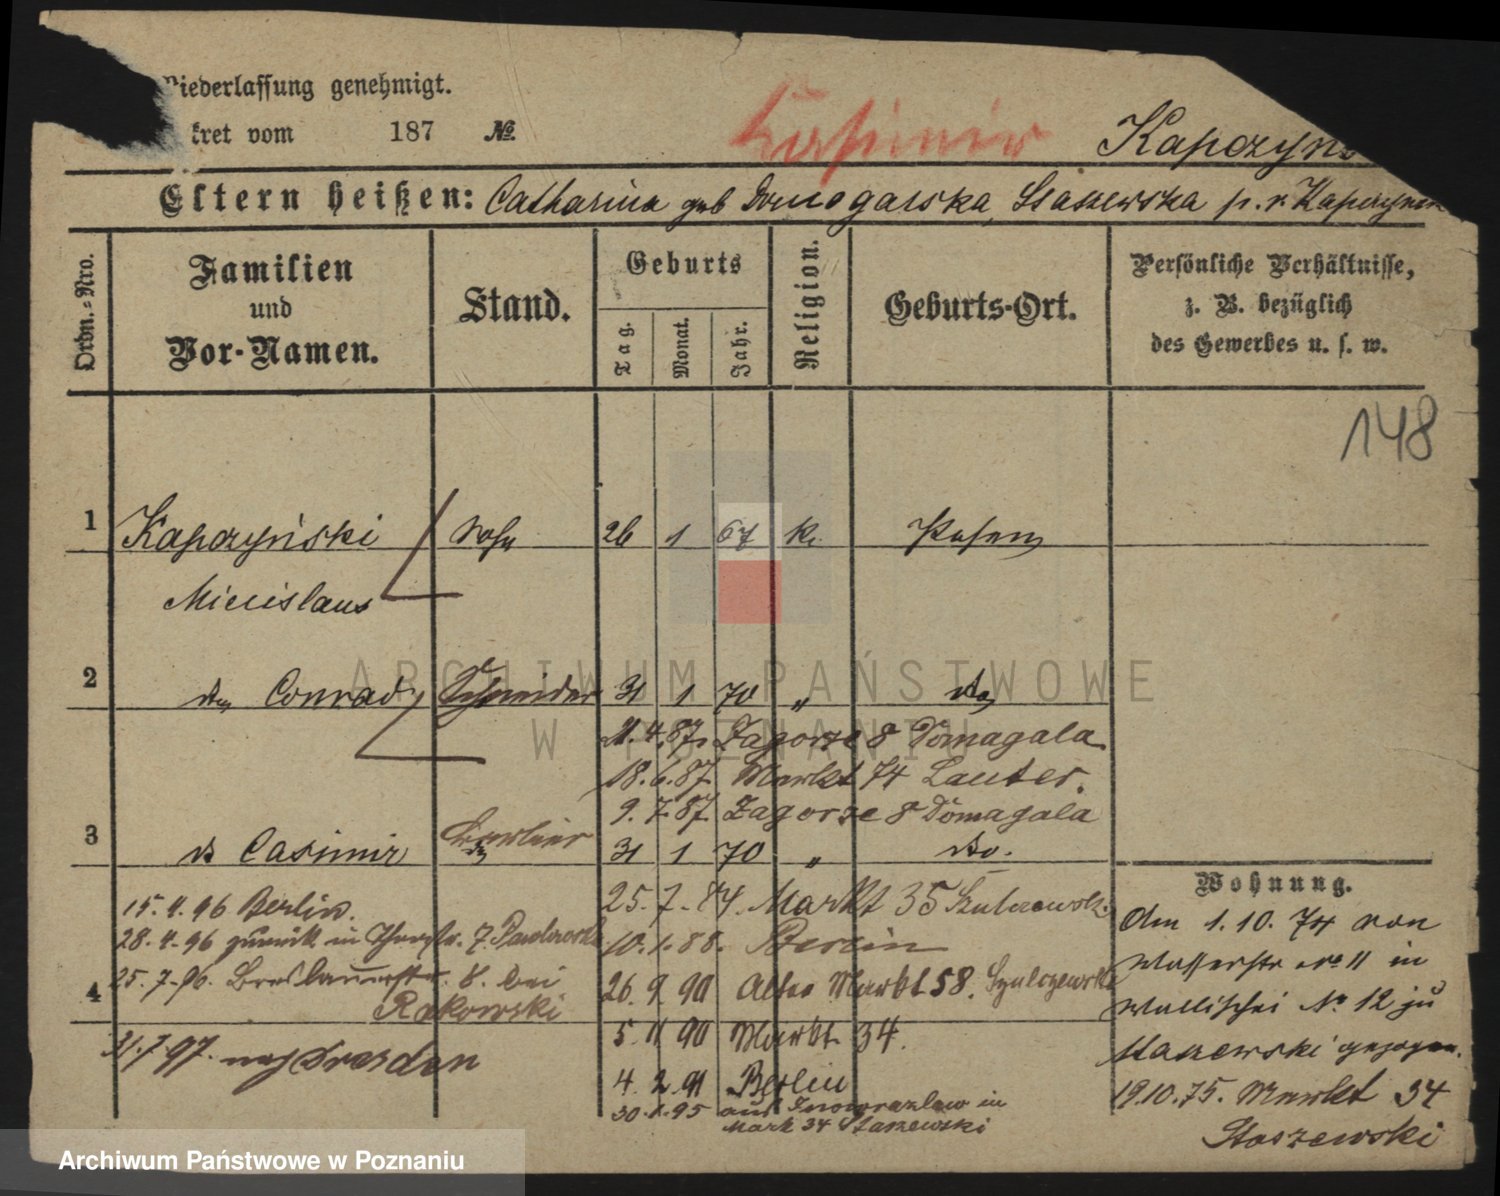 Niederlassung genehmigt.
kret vom 187 №
Casimir Kapczyns
Eltern heißen: Catharina geb Domogalska, Staszewska p. v. Kapczynski
Ordn.-Nro.
Familien
und
Vor-Namen.
Stand.
Geburts
Tag.
Monat.
Jahr.
Religion.
Geburts-Ort.
Persönliche Verhältnisse,
z. B. bezüglich
des Gewerbes u. s. w.
148
1 Kapczyński Sohn 26 1 67 k. Posen
Miecislaus
2 do Conrad Schneider 31 1 70 " do
11.4.87. Zagorze 8 Domagala
18.6.87. Markt 74 Lauter.
9.7.87. Zagorze 8 Domagala
3 do Casimir 31 1 70 " do.
15.4.96 Berlin.
28.4.96 zurück in Thorstr. 7. Pawlowski
25.7.96. Breslauerstr. 8. bei
4 Rakowski
31.7.97. nach Dresden
25.7.84. Markt 35 Szulczewski
10.1.88. Berlin
26 9 90 Alter Markt 58. Szulczewski
5. 11 90 Markt 34.
4. 2. 91 Berlin
30.1.95 aus Inowrazlaw in
Markt 34 Staszewski
Wohnung.
Am 1.10.74 von
Wasserstr No 11 in
Wallischei No 12 zu
Staszewski gezogen.
19.10.75. Markt 34
Staszewski
ARCHIWUM PAŃSTWOWE
W POZNANIU
Archiwum Państwowe w Poznaniu